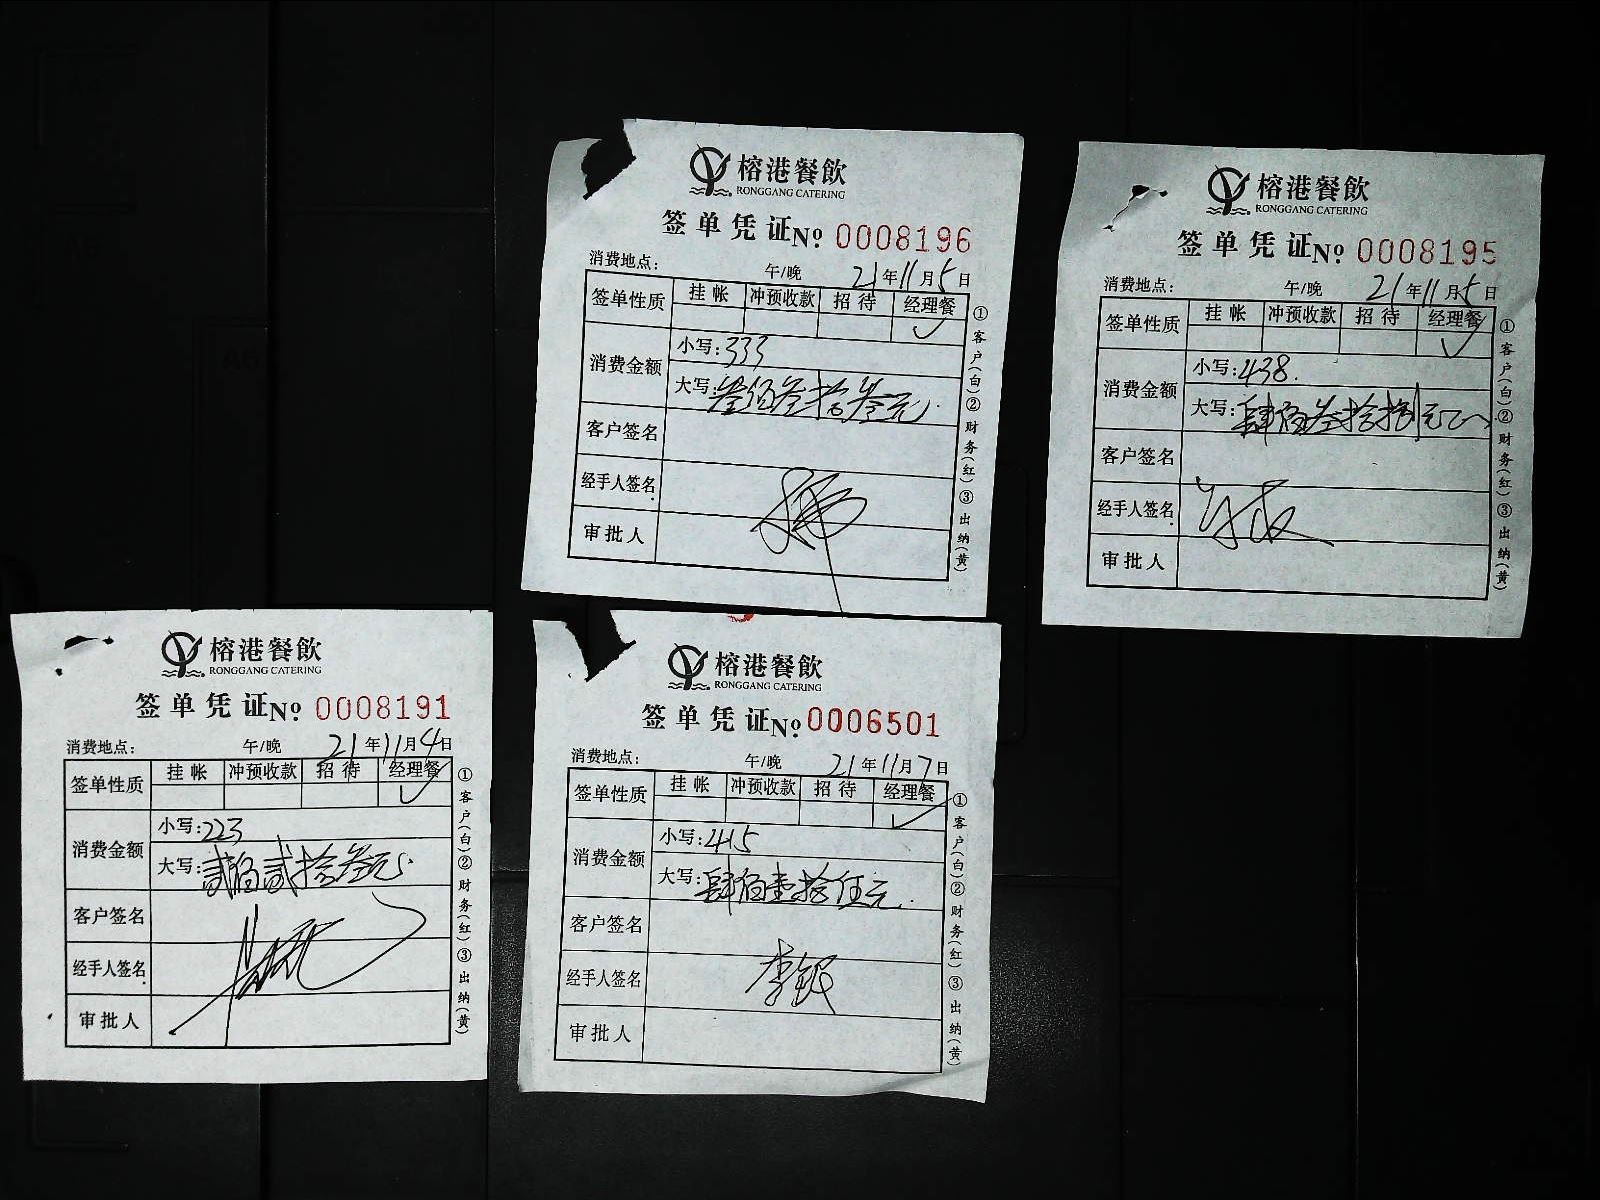 榕港餐飲
RONGGANG CATERING
签单凭证 № 0008196
消费地点： 午/晚 21年11月5日
签单性质 挂帐 冲预收款 招待 经理餐
✓
消费金额 小写：333
大写：叁佰叁拾叁元
客户签名
经手人签名
审批人
①客户(白)②财务(红)③出纳(黄)
榕港餐飲
RONGGANG CATERING
签单凭证 № 0008195
消费地点： 午/晚 21年11月5日
签单性质 挂帐 冲预收款 招待 经理餐
✓
消费金额 小写：438.
大写：肆佰叁拾捌元
客户签名
经手人签名
审批人
①客户(白)②财务(红)③出纳(黄)
榕港餐飲
RONGGANG CATERING
签单凭证 № 0008191
消费地点： 午/晚 21年11月4日
签单性质 挂帐 冲预收款 招待 经理餐
✓
消费金额 小写：223
大写：贰佰贰拾叁元
客户签名
经手人签名
审批人
①客户(白)②财务(红)③出纳(黄)
榕港餐飲
RONGGANG CATERING
签单凭证 № 0006501
消费地点： 午/晚 21年11月7日
签单性质 挂帐 冲预收款 招待 经理餐
✓
消费金额 小写：415
大写：肆佰壹拾伍元
客户签名
经手人签名 李银
审批人
①客户(白)②财务(红)③出纳(黄)